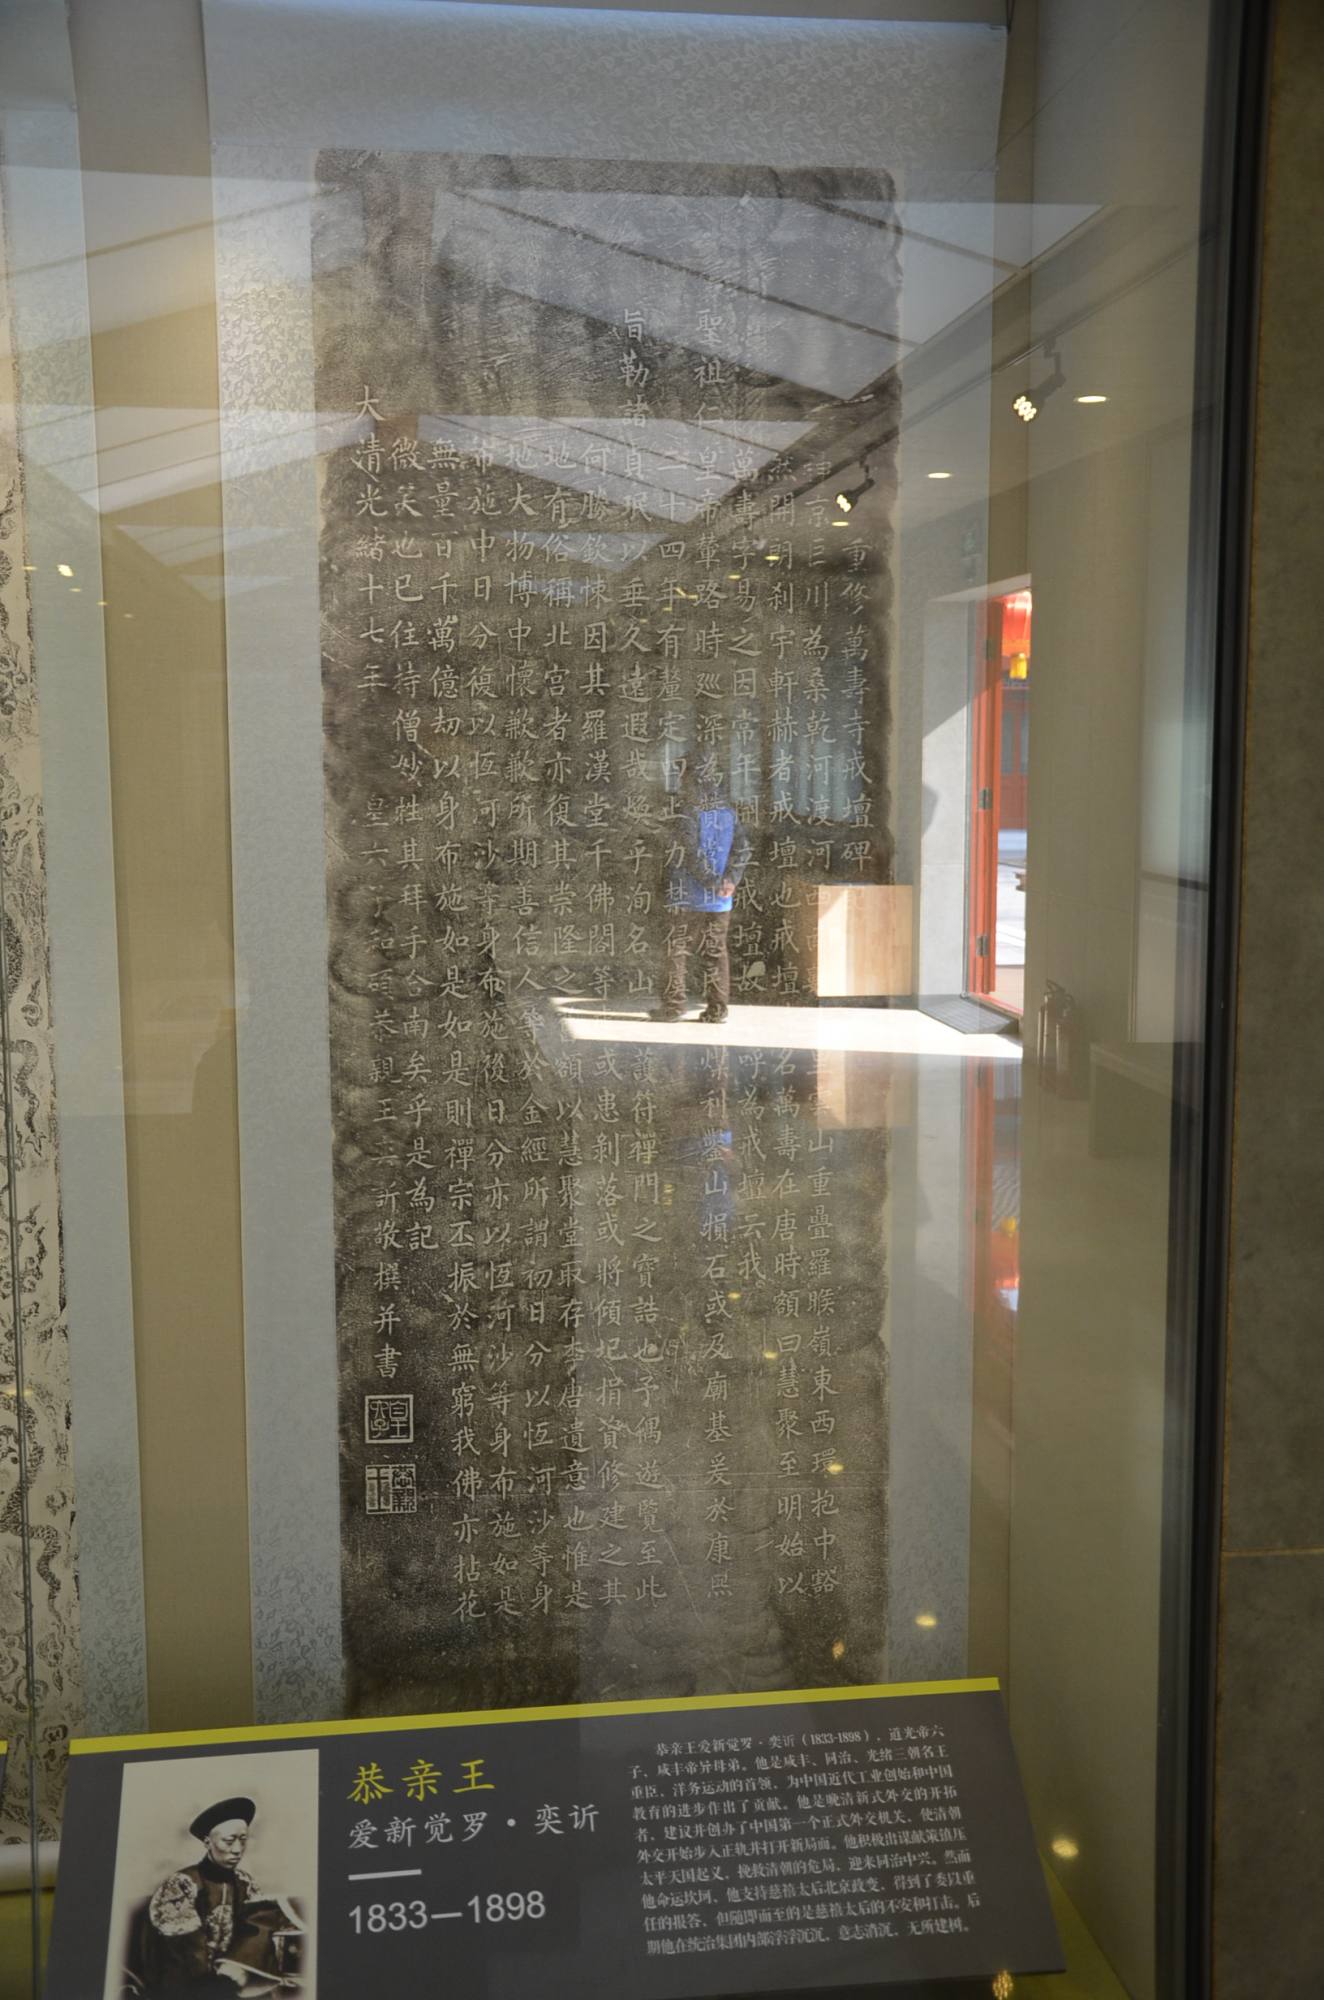 重修萬壽寺戒壇碑
京巨川為桑乾河渡河西 雲山重疊羅睺嶺東西環抱中豁
然開朗剎宇軒赫者戒壇也戒壇 名萬壽在唐時額曰慧聚至明始以
萬壽字易之因常年開立戒壇故 呼為戒壇云我
聖祖仁皇帝輦路時巡深為贊賞且慮民 煤利鑿山損石或及廟基爰於康熙
二十四年有釐定四止力禁侵
旨勒諸貞珉以垂久遠遐哉煥乎洵名山 護符禪門之寶誥也予偶遊覽至此
何勝欽悚因其羅漢堂千佛閣等 或患剝落或將傾圮捐資修建之其
地有俗稱北宮者亦復其崇隆之 額以慧聚堂取存李唐遺意也惟是
地大物博中懷歉歉所期善信人等於金經所謂初日分以恆河沙等身
布施中日分復以恆河沙等身布施後日分亦以恆河沙等身布施如是
無量百千萬億劫以身布施如是如是則禪宗丕振於無窮我佛亦拈花
微笑也已住持僧妙性其拜手合南矣乎是為記
大清光緒十七年 皇六子和碩恭親王奕訢敬撰并書
皇六子
恭親王
恭亲王
爱新觉罗·奕䜣
1833—1898
恭亲王爱新觉罗·奕䜣（1833-1898），道光帝六
子、咸丰帝异母弟。他是咸丰、同治、光绪三朝名王
重臣，洋务运动的首领，为中国近代工业创始和中国
教育的进步作出了贡献。他是晚清新式外交的开拓
者，建议并创办了中国第一个正式外交机关，使清朝
外交开始步入正轨并打开新局面。他积极出谋献策镇压
太平天国起义，挽救清朝的危局，迎来同治中兴。然而
他命运坎坷，他支持慈禧太后北京政变，得到了委以重
任的报答，但随即而至的是慈禧太后的不安和打击。后
期他在统治集团内部浮浮沉沉，意志消沉，无所建树。